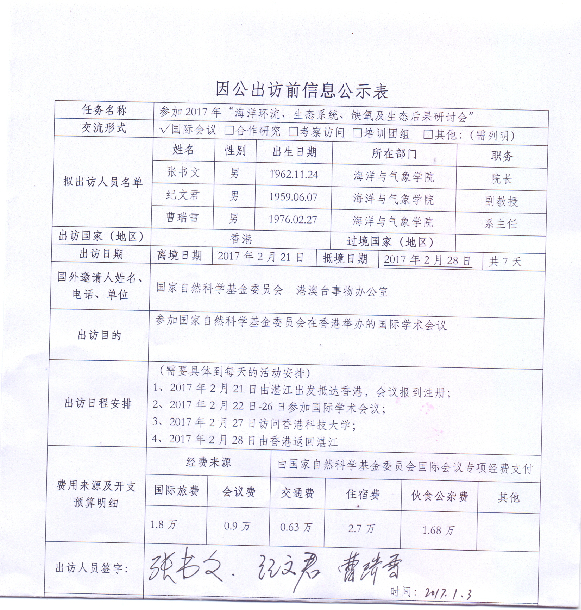 因公出访前信息公示表
任务名称 参加2017年“海洋环流、生态系统、缺氧及生态后果研讨会”
交流形式 ✓国际会议 □合作研究 □考察访问 □培训团组 □其他:(需列明)
拟出访人员名单 姓名 性别 出生日期 所在部门 职务
张书文 男 1962.11.24 海洋与气象学院 院长
纪文君 男 1959.06.07 海洋与气象学院 副教授
曹瑞雪 男 1976.02.27 海洋与气象学院 系主任
出访国家(地区) 香港 过境国家(地区)
出访日期 离境日期 2017年2月21日 抵境日期 2017年2月28日 共7天
国外邀请人姓名、
电话、单位 国家自然科学基金委员会 港澳台事务办公室
出访目的 参加国家自然科学基金委员会在香港举办的国际学术会议
(需要具体到每天的活动安排)
出访日程安排 1、2017年2月21日由湛江出发抵达香港,会议报到注册;
2、2017年2月22日-26日参加国际学术会议;
3、2017年2月27日访问香港科技大学;
4、2017年2月28日由香港返回湛江
费用来源及开支
预算明细 经费来源 由国家自然科学基金委员会国际会议专项经费支付
国际旅费 会议费 交通费 住宿费 伙食公杂费 其他
1.8万 0.9万 0.63万 2.7万 1.68万
出访人员签字: 张书文. 纪文君 曹瑞雪
时间:2017.1.3